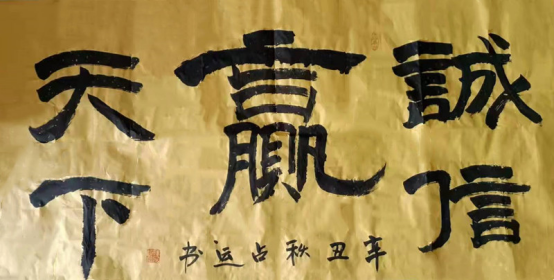 誠信
赢
天下
辛丑秋占运书